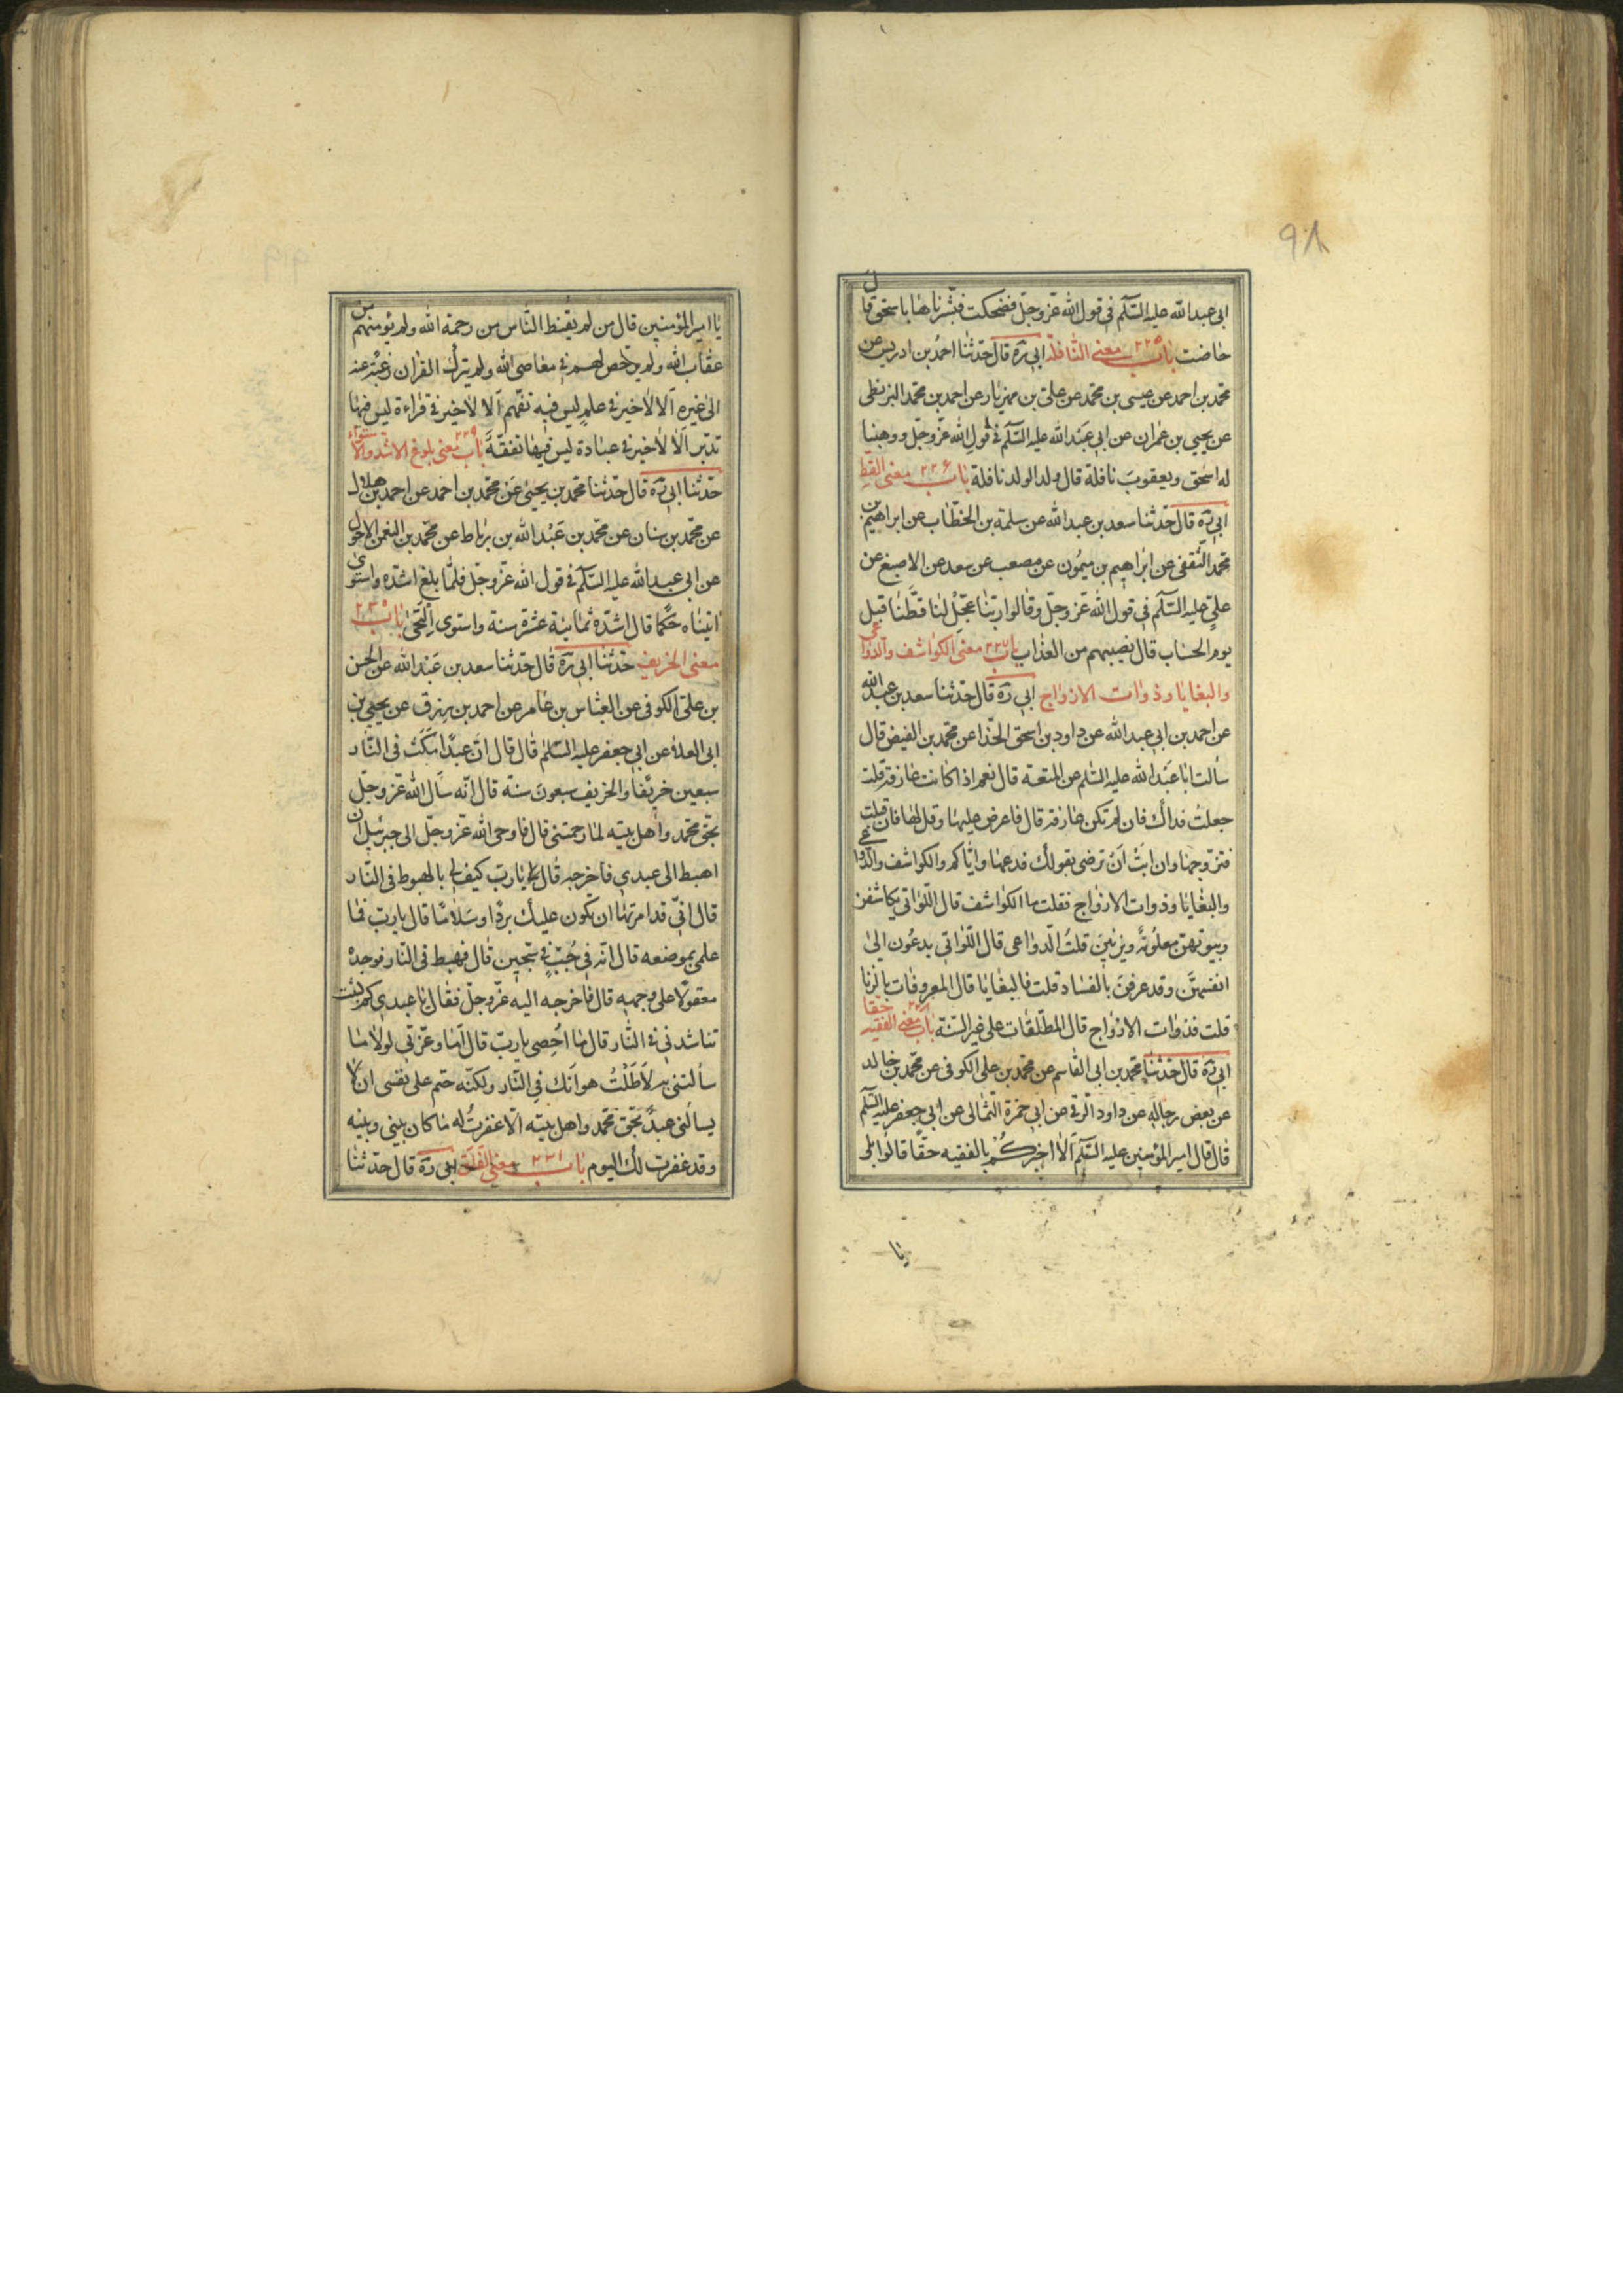 ٩٨
ابى عبد الله عليه السّلم فى قول الله عزّ وجلّ فضحكت فبشّرناها باسحق قال
حاضت باب ٢٢٥ معنى النافلة ابى ره قال حدّثنا احمد بن ادريس عن
محمّد بن احمد عن عيسى بن محمّد عن على بن مهزيار عن احمد بن محمّد البزنطى
عن يحيى بن عمران عن ابى عبد الله عليه السّلم فى قول الله عزّ وجلّ ووهبنا
له اسحق ويعقوب نافلة قال ولد الولد نافلة باب ٢٢۶ معنى القط
ابى ره قال حدّثنا سعد بن عبد الله عن سلمة بن الخطّاب عن ابراهيم بن
محمّد الثّقفى عن ابراهيم بن ميمون عن مصعب عن سعد عن الاصبغ عن
علىّ عليه السّلم فى قول الله عزّ وجلّ وقالوا ربّنا عجّل لنا قطّنا قبل
يوم الحساب قال نصيبهم من العذاب باب ٢٢٧ معنى الكواشف والدّواعى
والبغايا وذوات الازواج ابى ره قال حدّثنا سعد بن عبد الله
عن احمد بن ابى عبد الله عن داود بن اسحق الحذا عن محمّد بن الفيض قال
سألت ابا عبد الله عليه السّلم عن المتعة قال نعم اذا كانت عارفة قلت
جعلت فداك فان لم تكن عارفة قال فاعرض عليها وقل لها فان قبلت
فتزوّجها وان ابت ان ترضى بقولك فدعها وايّاكم والكواشف والدّواعى
والبغايا وذوات الازواج فقلت ما الكواشف قال اللّواتى يكاشفن
وبيوتهنّ معلومة ويزنين قلت الدّواعى قال اللّواتى يدعون الى
انفسهنّ وقد عرفن بالفساد قلت فالبغايا قال المعروفات بالزنا
قلت فذوات الازواج قال المطلّقات على غير السّنة باب ٢٢٨ معنى الفقيه حقا
ابى ره قال حدّثنا محمّد بن ابى القاسم عن محمّد بن على الكوفى عن محمّد بن خالد
عن بعض رجاله عن داود الرقى عن ابى حمزة الثمالى عن ابى جعفر عليه السّلم
قال قال امير المؤمنين عليه السّلم ألا اخبركم بالفقيه حقّا قالوا بلى
يا
يا امير المؤمنين قال من لم يقنط النّاس من رحمة الله ولم يؤمنهم من
عقاب الله ولم يرخّص لهم فى معاصى الله ولم يترك القران رغبة عنه
الى غيره الا لا خير فى علم ليس فيه تفهّم ألا لا خير فى قراءة ليس فيها
تدبّر ألا لا خير فى عبادة ليس فيها تفقّه باب ٢٢٩ معنى بلوغ الاشد والاستواء
حدّثنا ابى ره قال حدّثنا محمّد بن يحيى عن محمّد بن احمد عن احمد بن هلال
عن محمّد بن سنان عن محمّد بن عبد الله بن رباط عن محمّد بن النعمن الاحول
عن ابى عبد الله عليه السّلم فى قول الله عزّ وجلّ فلمّا بلغ اشدّه واستوى
اتيناه حكما قال اشدّه ثمانية عشرة سنة واستوى التحى باب ٢٣٠
معنى الخريف حدّثنا ابى ره قال حدّثنا سعد بن عبد الله عن الحسن
بن على الكوفى عن العبّاس بن عامر عن احمد بن رزق عن يحيى بن
ابى العلاء عن ابى جعفر عليه السّلم قال قال انّ عبدا مكث فى النّار
سبعين خريفا والخريف سبعون سنة قال انّه سأل الله عزّ وجلّ
بحق محمّد واهل بيته لما رحمتنى قال فاوحى الله عزّ وجلّ الى جبرئيل ان
اهبط الى عبدى فاخرجه قال يا ربّ كيف لى بالهبوط فى النّار
قال انّى قد امرتها ان تكون عليك بردا وسلاما قال يا ربّ فما
علمى بموضعه قال انّه فى جبّ فى سجّين قال فهبط فى النّار فوجده
معقولا على وجهه قال فاخرجه اليه عزّ وجلّ فقال يا عبدى كم لبثت
تناشدنى فى النّار قال ما احصى يا ربّ قال أما وعزّتى لولا ما
سألتنى به لأطلت هوانك فى النّار ولكنّه حتم على نفسى ان لا
يسألنى عبد بحق محمّد واهل بيته الّا غفرت له ما كان بينى وبينه
وقد غفرت لك اليوم باب ٢٣١ معنى الفلق ابى ره قال حدّثنا